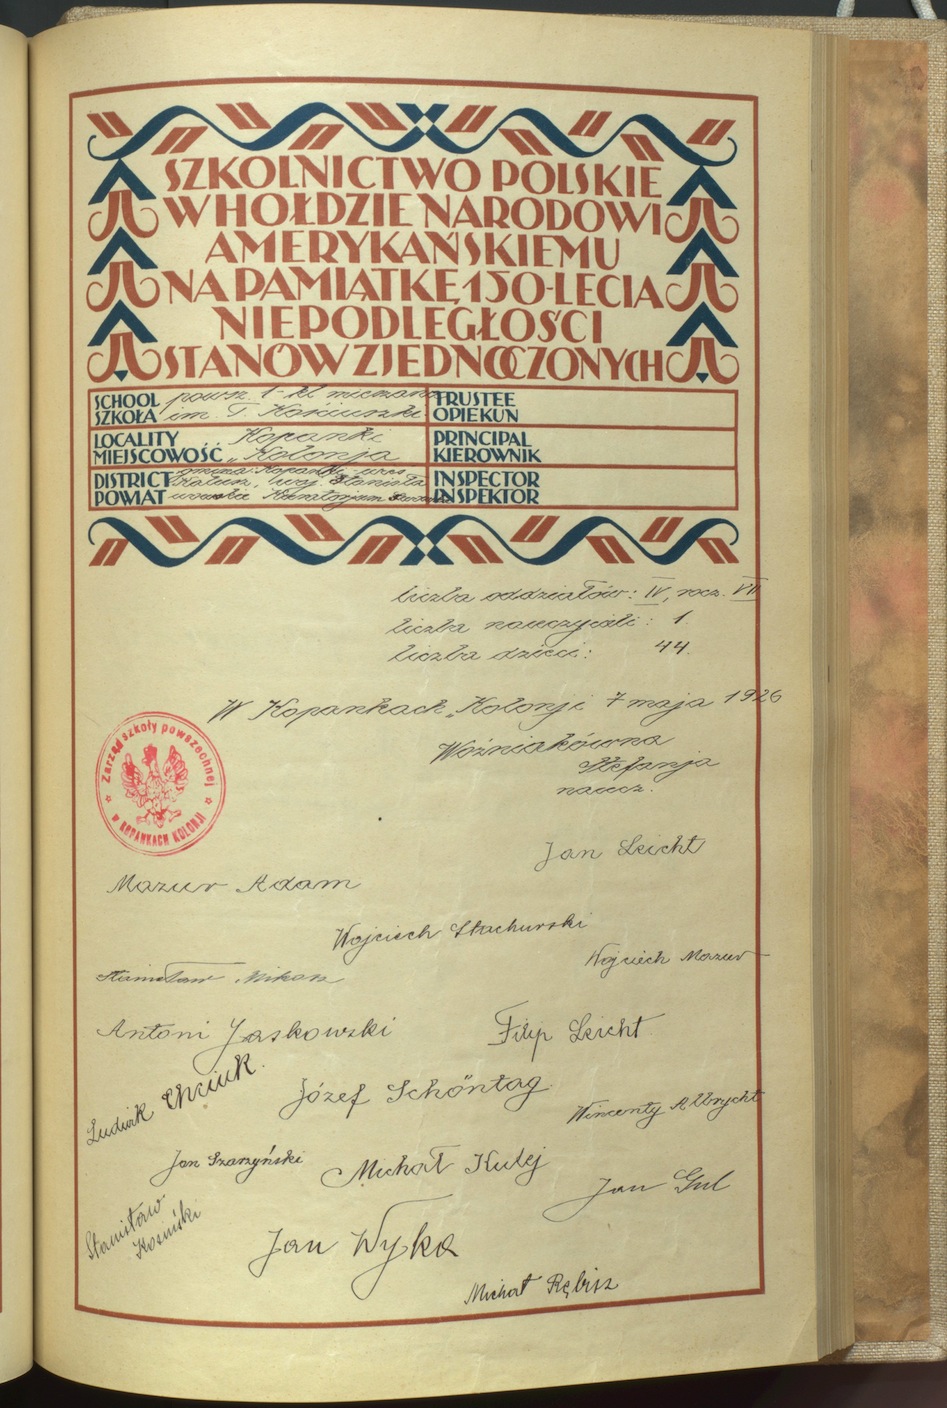 SZKOLNICTWO POLSKIE
W HOŁDZIE NARODOWI
AMERYKAŃSKIEMU
NA PAMIĄTKĘ 150-LECIA
NIEPODLEGŁOŚCI
STANÓW ZJEDNOCZONYCH
SCHOOL
SZKOŁA
powsz. 1-kl. mieszana
im. T. Kościuszki
TRUSTEE
OPIEKUN
LOCALITY
MIEJSCOWOŚĆ
Kopanki
„Kolonja
PRINCIPAL
KIEROWNIK
DISTRICT
POWIAT
gmina: Kopanki,
Kałusz, woj. Stanisła
wowskie Kuratorjum
INSPECTOR
INSPEKTOR
liczba oddziałów: IV, rocz. VII
liczba nauczycieli: 1.
liczba dzieci: 44.
W Kopankach „Kolonji 7 maja 1926
Woźniakówna
Stefanja
naucz.
Zarząd szkoły powszechnej
w KOPANKACH KOLONJI
Jan Leicht
Mazur Adam
Wojciech Stachurski
Wojciech Mazur
Stanisław Mikosz
Antoni Jaskowski
Filip Leicht
Ludwik Chciuk.
Józef Schöntag
Wincenty Albrycht
Jan Szarzyński
Michał Kulej
Jan Gul
Stanisław
Kosiński
Jan Wyka
Michał Rębisz